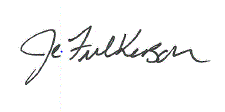 Jc. Fulkerson